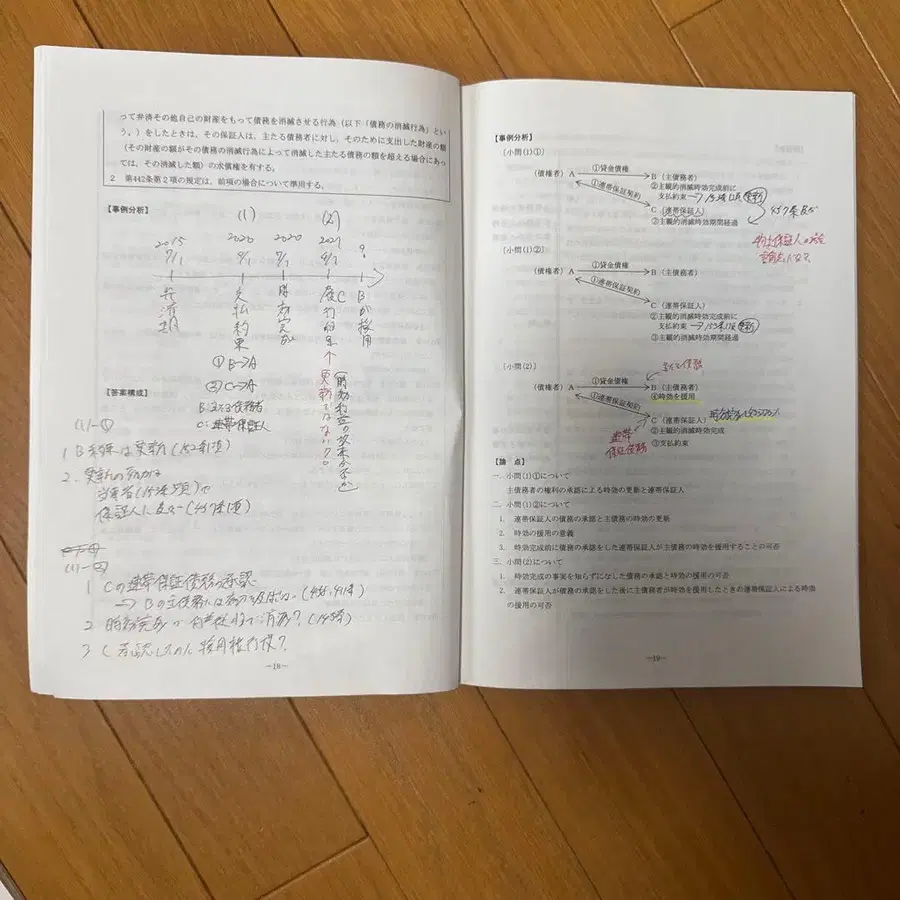 って弁済その他自己の財産をもって債務を消滅させる行為（以下「債務の消滅行為」とい
う。）をしたときは、その保証人は、主たる債務者に対し、そのために支出した財産の額
（その財産の額がその債務の消滅行為によって消滅した主たる債務の額を超える場合にあっ
ては、その消滅した額）の求償権を有する。
2 第442条第2項の規定は、前項の場合について準用する。
【事例分析】
(1) (2)
2015 2020 2020 2021 ?
7/1
弁済期
支払約束
時効完成
Bが援用
① B→A
② C→A
B:主たる債務者
C:連帯保証人
更新ではない?
【答案構成】
(1)-①
1 B 承認は更新(152条1項)
2. 更新の効力は
当事者(153条3項)で
保証人に及ぶ(457条1項)
(1)-②
1 Cの連帯保証債務の承認
→ Bの主債務には効力及ばない(458, 441条)
2 時効完成 消滅?(145条)
3 C 承認したのに援用権行使?
—18—
【事例分析】
［小問(1)①］
（債権者） A ①貸金債権 B （主債務者）
①連帯保証契約
②主観的消滅時効完成前に
支払約束→152条1項 更新
457条及ぶ
C （連帯保証人）
③主観的消滅時効期間経過
物上保証人の場合
［小問(1)②］
（債権者） A ①貸金債権 B （主債務者）
①連帯保証契約
C （連帯保証人）
②主観的消滅時効完成前に
支払約束→152条1項 更新
③主観的消滅時効期間経過
［小問(2)］
主たる債務
（債権者） A ①貸金債権 B （主債務者）
④時効を援用
①連帯保証契約
C （連帯保証人）
②主観的消滅時効完成
③支払約束
連帯
保証債務
【論　点】
一．小問(1)①について
主債務者の権利の承認による時効の更新と連帯保証人
二．小問(1)②について
1. 連帯保証人の債務の承認と主債務の時効の更新
2. 時効の援用の意義
3. 時効完成前に債務の承認をした連帯保証人が主債務の時効を援用することの可否
三．小問(2)について
1. 時効完成の事実を知らずになした債務の承認と時効の援用の可否
2. 連帯保証人が債務の承認をした後に主債務者が時効を援用したときの連帯保証人による時効
の援用の可否
—19—